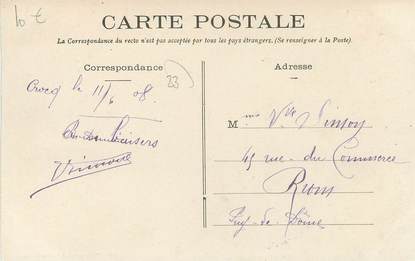 10 €
CARTE POSTALE
La Correspondance du recto n'est pas acceptée par tous les pays étrangers. (Se renseigner à la Poste).
Correspondance
Adresse
Crocq le 11/6 08
23
M
45 rue du Commerce
Riom
Puy-de-Dôme